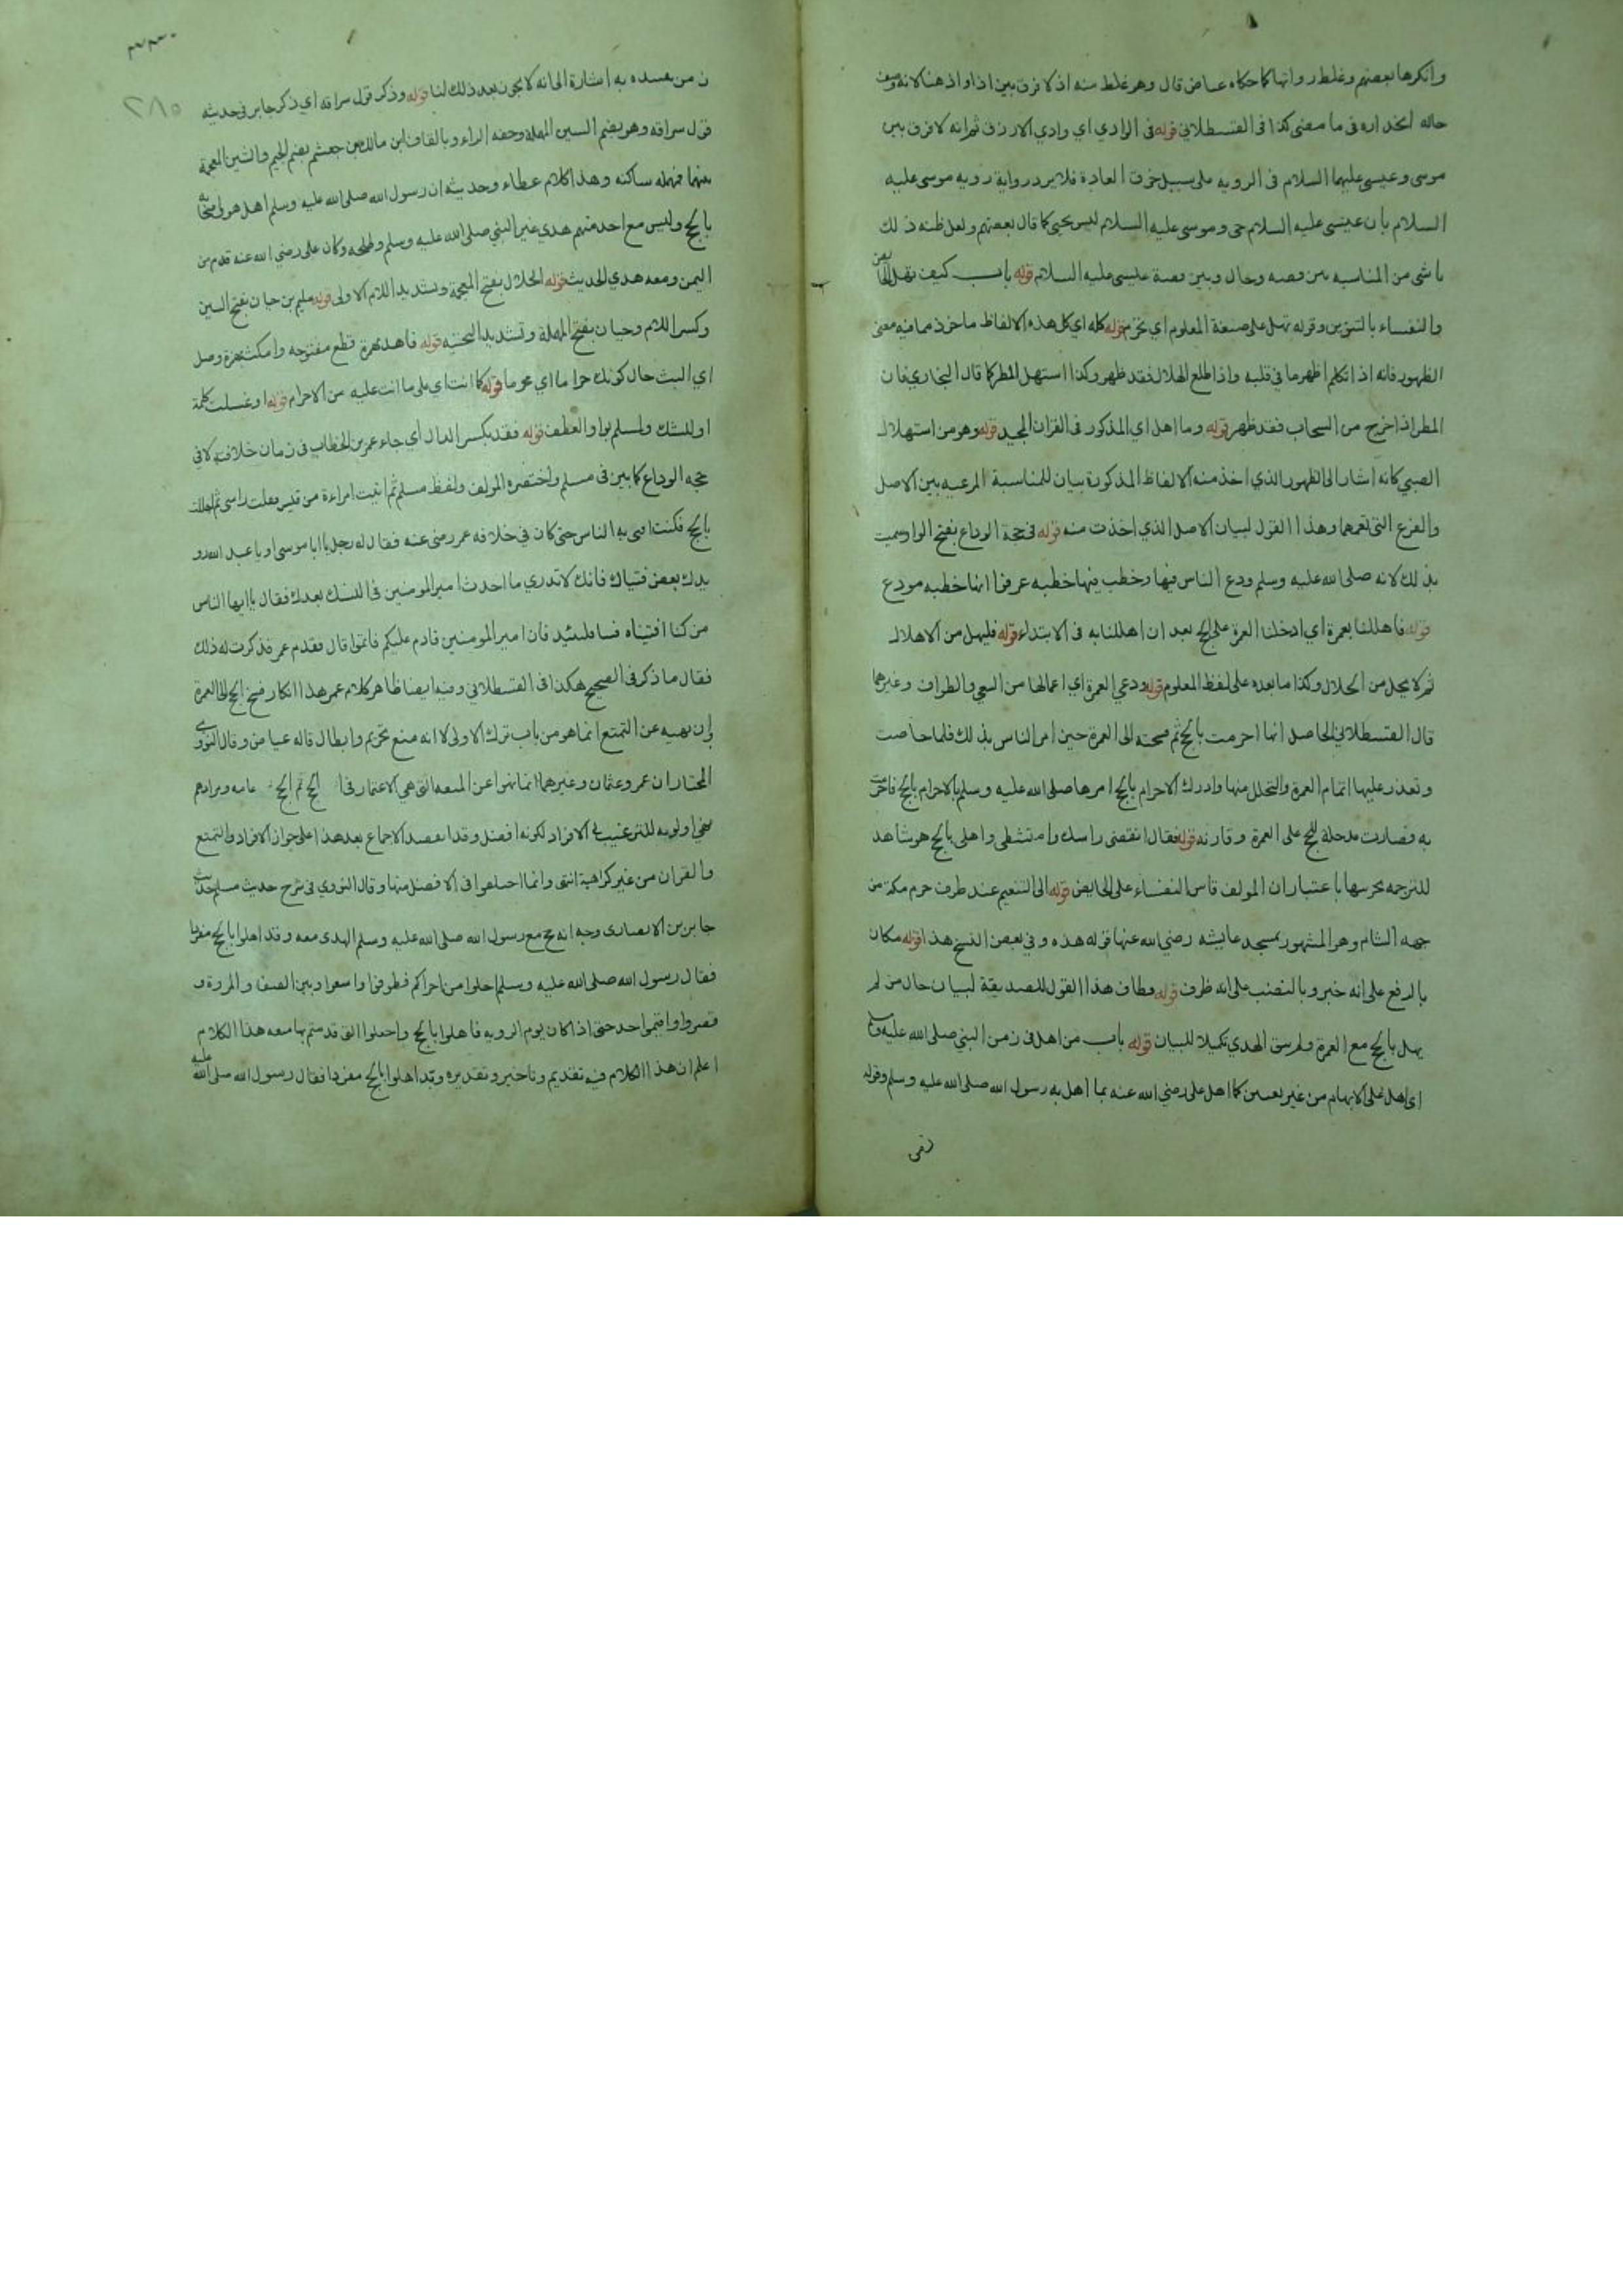 وانكرها بعضهم وغلط رواتها كما حكاه عياض قال وهو غلط منه اذ لا فرق بين اذا واذ هنا لانه وصف
حاله انحداره فى ما مضى كذا فى القسطلانى قوله فى الوادي اي وادي الازرق ثم انه لا فرق بين
موسى وعيسى عليهما السلام فى الرويه على سبيل خرق العادة فلا يرد رواية رويه موسى عليه
السلام بأن عيسى عليه السلام حى وموسى عليه السلام ليس بحيى كما قال بعضهم ولعل ظنه ذلك
ناشى من المناسبه بين قصه وحال وبين قصة عيسى عليه السلام قوله باب كيف تهل الحائض
والنفساء بالتنوين وقوله تهل على صيغة المعلوم اي تحرم قوله كله اي كل هذه الالفاظ ماخوذ مما فيه معنى
الظهور فانه اذا تكلم اظهر ما فى قلبه واذا طلع الهلال فقد ظهر وكذا استهل المطر كما قال البخاري فان
المطر اذا خرج من السحاب فقد ظهر قوله وما اهل اي المذكور فى القران المجيد قوله وهو من استهلال
الصبي كانه اشار الى الظهور الذي اخذ منه الالفاظ المذكورة بيان للمناسبة المرعيه بين الاصل
والفرع التى تعمها وهذا القول لبيان الاصل الذي اخذت منه قوله فى حجة الوداع بفتح الواو سميت
بذلك لانه صلى الله عليه وسلم ودع الناس فيها وخطب فيها خطبه عرفوا انها خطبه مودع
قوله فاهللنا بعمرة اي ادخلنا العمرة على الحج بعد ان اهللنا به فى الابتداء قوله فليهل من الاهلال
ثم لا يحل من الحلال وكذا ما بعده على لفظ المعلوم قوله ودعي العمرة اي اعمالها من السعي والطواف وغيرهما
قال القسطلاني الحاصل انها احرمت بالحج ثم فسخته الى العمرة حين امر الناس بذلك فلما حاضت
وتعذر عليها اتمام العمرة والتحلل منها وادرك الاحرام بالحج امرها صلى الله عليه وسلم بالاحرام بالحج فاحرمت
به فصارت مدخلة للحج على العمرة وقارنه قوله فقال انقضى راسك وامتشطى واهلى بالحج هو شاهد
للترجمه باعتبار ان المولف قاس النفساء على الحايض قوله الى التنعيم عند طرف حرم مكة من
جهه الشام وهو المشهور بمسجد عايشه رضي الله عنها قوله هذه وفى بعض النسخ هذا قوله مكان
بالرفع على انه خبر وبالنصب على انه ظرف قوله فطاف هذا القول للصديقة لبيان حال من لم
يهل بالحج مع العمرة ولم يسق الهدي تكميلا للبيان قوله باب من اهل فى زمن النبي صلى الله عليه وسلم
اي اهل على الابهام من غير تعيين كما اهل على رضي الله عنه بما اهل به رسول الله صلى الله عليه وسلم وقوله
٢٨٠
به اشارة الى انه لا يجوز بعد ذلك لنا قوله وذكر قول سراقه اي ذكر جابر فى حديثه
قول سراقه وهو بضم السين المهملة وخفه الراء وبالقاف ابن مالك بن جعشم بضم الجيم والشين المعجمة
بينهما مهمله ساكنه وهذا كلام عطاء وحديثه ان رسول الله صلى الله عليه وسلم اهل هو واصحابه
بالحج وليس مع احد منهم هدي غير النبي صلى الله عليه وسلم وطلحه وكان على رضي الله عنه قدم من
اليمن ومعه هدي الحديث قوله الخلال بفتح المعجمة وتشديد اللام الاولى قوله سليم بن حيان بفتح السين
وكسر اللام وحيان بفتح المهملة وتشديد التحتيه قوله فاهد بهمزة قطع مفتوحه وامكث بهمزة وصل
اي البث حال كونك حراما اي محرما قوله كما انت اي على ما انت عليه من الاحرام قوله او غسلت كلمة
او للشك ولمسلم بواو العطف قوله فقدم بكسر الدال أي جاء عمر بن الخطاب فى زمان خلافته لا فى
حجه الوداع كما بين فى مسلم واختصره المولف ولفظ مسلم ثم اتيت امراءة من قيس ففلت راسى ثم اهللت
بالحج فكنت افتى به الناس حتى كان في خلافه عمر رضى عنه فقال له رجل يا ابا موسى او يا عبد الله رو
يدك بعض فتياك فانك لا تدري ما احدث امير المومنين فى النسك بعدك فقال يا ايها الناس
من كنا افتيناه فتيا فليتئد فان امير المومنين قادم عليكم فاتموا قال فقدم عمر فذكرت له ذلك
فقال ما ذكر فى الصحيح هكذا فى القسطلاني وفيه ايضا ظاهر كلام عمر هذا انكار فسخ الحج الى العمرة
وان نهيه عن التمتع انما هو من باب ترك الاولى لا انه منع تحريم وابطال قاله عياض وقال النووي
المختار ان عمر وعثمان وغيرهما انما نهوا عن المتعه التى هي الاعتمار فى الحج ثم الحج عامه ومرادهم
نهي اولويه للترغيب فى الافراد لكونه افضل وقد انعقد الاجماع بعد هذا على جواز الافراد والتمتع
والقران من غير كراهية انتهى وانما اختلفوا فى الافضل منها وقال النووي فى شرح حديث مسلم حديث
جابر بن الانصارى انه حج مع رسول الله صلى الله عليه وسلم الهدى معه وقد اهلوا بالحج مفردا
فقال رسول الله صلى الله عليه وسلم احلوا من احرامكم فطوفوا واسعوا وبين الصفا والمروة و
قصروا واقيموا حتى اذا كان يوم الترويه فاهلوا بالحج واجعلوا التى قدمتم بها متعه هذا الكلام
اعلم ان هذا الكلام فيه تقديم وتاخير وتقديره وقد اهلوا بالحج مفردا فقال رسول الله صلى الله عليه